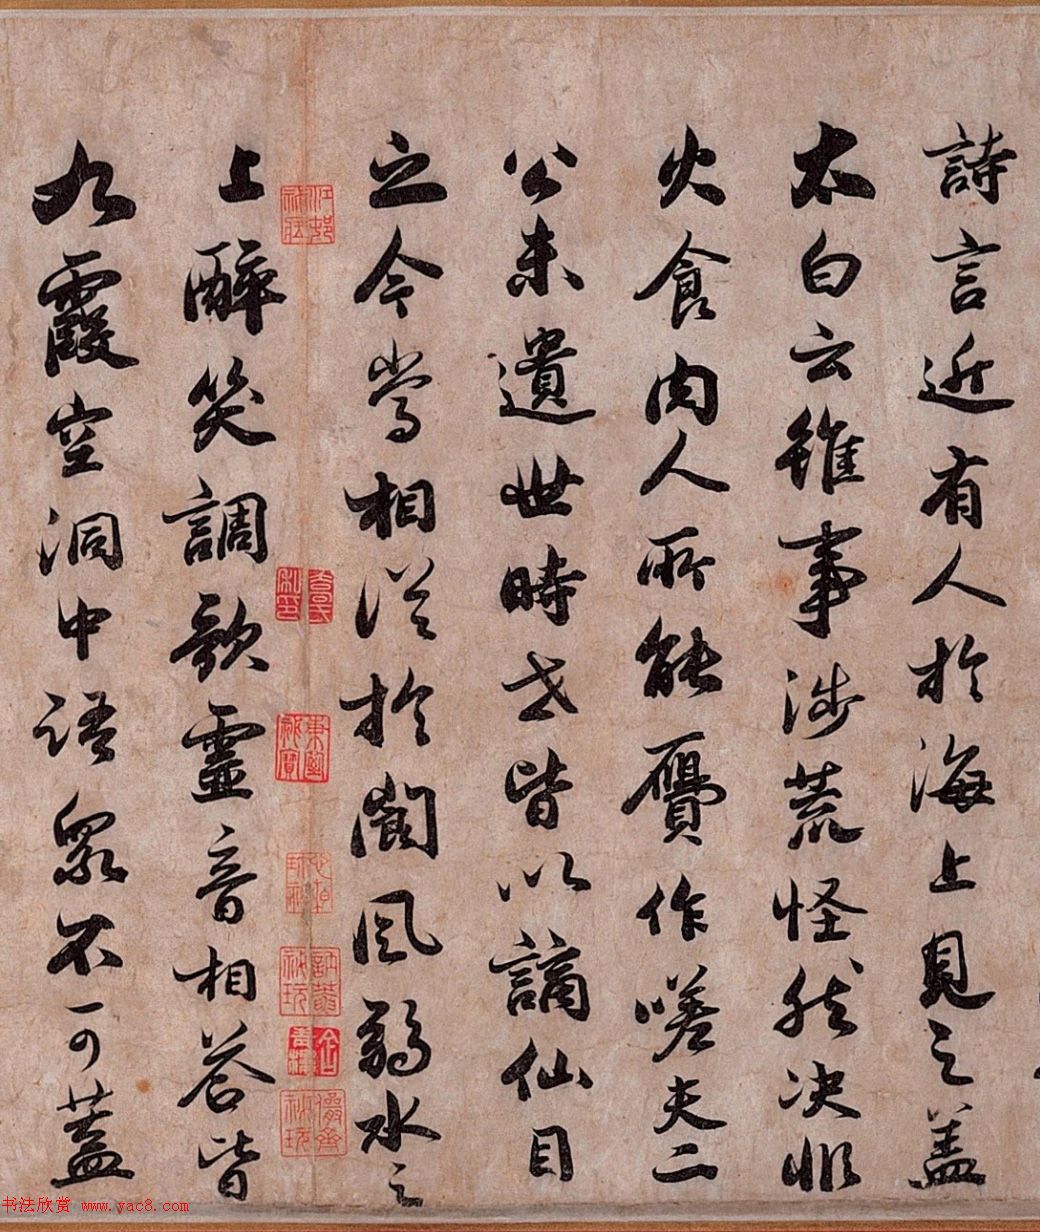 詩言近有人於海上見之蓋
太白云雖事涉荒怪然決非
火食肉人所能贗作嗟夫二
公未遺世時世皆以謫仙目
之今當相從於閬風弱水之
上醉笑調歌靈音相答皆
九霞空洞中語眾不可蓋
书法欣赏 www.yac8.com